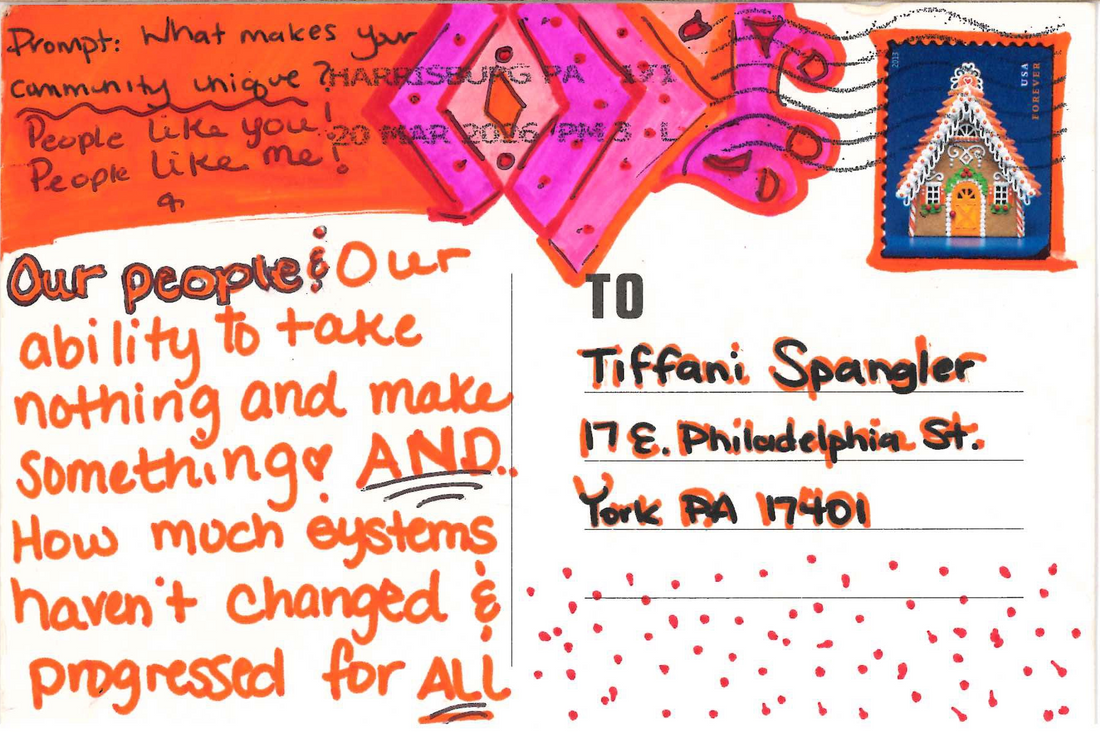 Prompt: What makes your
community unique?
People like you!
People like me!
HARRISBURG PA 171
20 MAR 2016 PM 3 L
2013
USA
FOREVER
Our people & Our
ability to take
nothing and make
something AND..
How much systems
haven't changed &
progressed for ALL
TO
Tiffani Spangler
17 E. Philadelphia St.
York PA 17401